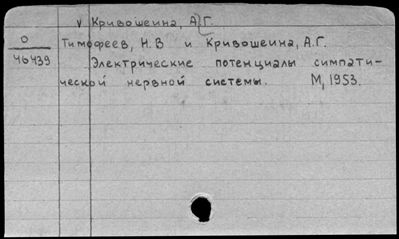 v Кривошеина, А.Г.
О
46439
Тимофеев, Н.В и Кривошеина, А.Г.
Электрические потенциалы симпати-
ческой нервной системы. М, 1953.